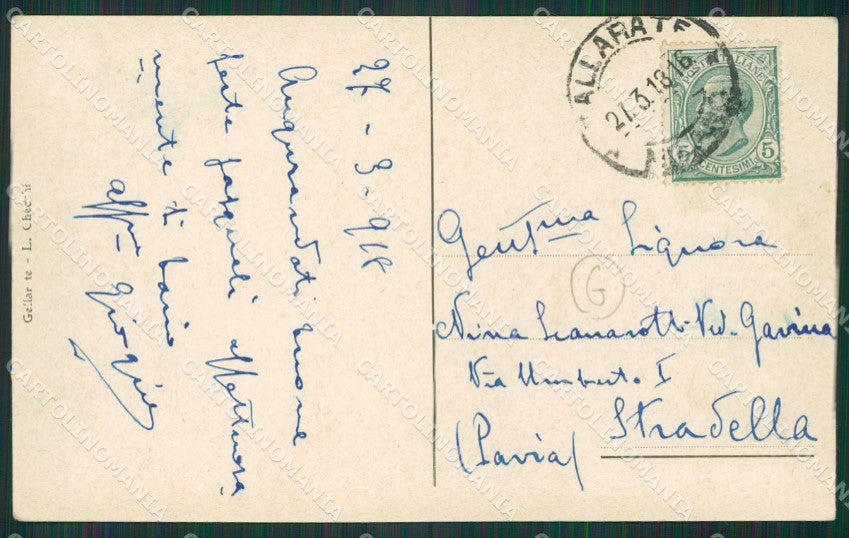 27-3-916
Augurandoti buone
feste pasquali affettuosa
mente ti bacio
aff.
GALLARATE
27.3.16
POSTE ITALIANE
5 CENTESIMI 5
Gent.ma Signora
Nina Scanarotti Ved. Gavina
Via Umberto I
Stradella
(Pavia)
G
Gallarate - L. Checchi
CARTOLINOMANIA